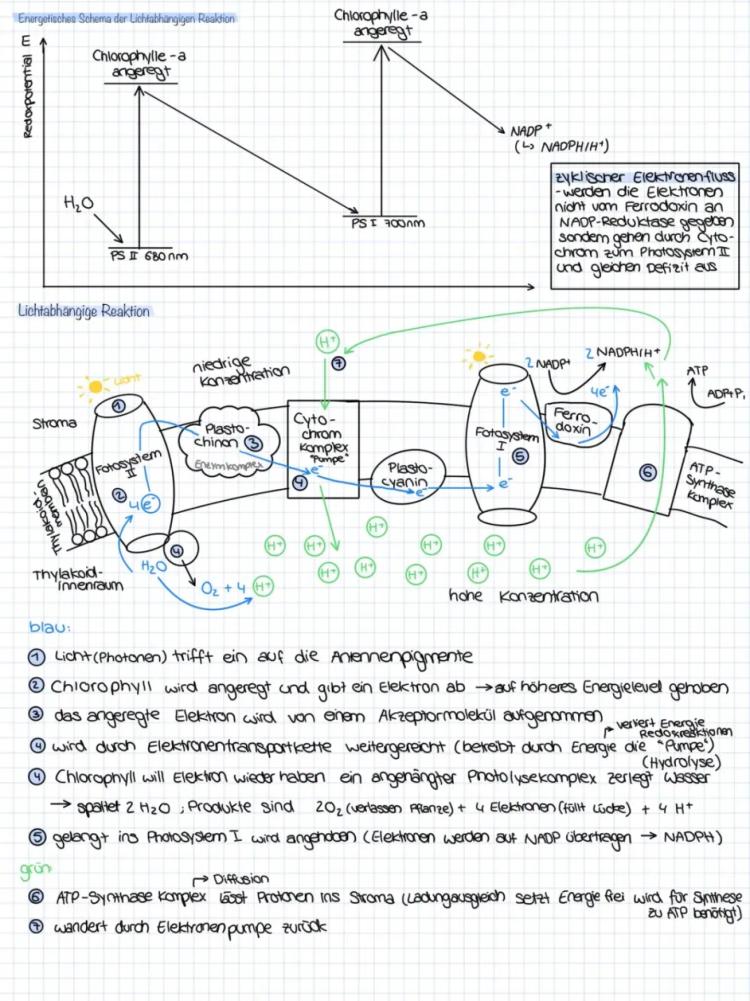 Energetisches Schema der Lichtabhängigen Reaktion
Redoxpotential E
Chlorophylle-a
angeregt
Chlorophylle-a
angeregt
H₂O
PS II 680nm
PS I 700nm
NADP⁺
(↳ NADPH/H⁺)
zyklischer Elektronenfluss
- werden die Elektronen
nicht vom Ferrodoxin an
NADP-Reduktase gegeben
sondern gehen durch Cyto-
chrom zum Photosystem II
und gleichen Defizit aus
Lichtabhängige Reaktion
Licht
niedrige
Konzentration
H⁺
7
2 NADP+
2 NADPH/H⁺
ATP
ADP+P,
Stroma
1
Plasto-
chinon 3
Enzymkomplex
Cyto-
chrom
Komplex
"Pumpe"
e⁻
4
Plasto-
cyanin
e⁻
e⁻
Fotosystem
I
5
e⁻
Ferro-
doxin
4e⁻
6
ATP-
Synthase
Komplex
Fotosystem
II
2
4 e⁻
Thylakoid-
membran
4
Thylakoid-
innenraum
H₂O
O₂ + 4 H⁺
H⁺ H⁺ H⁺ H⁺ H⁺ H⁺
H⁺ H⁺ H⁺ H⁺ H⁺
hohe Konzentration
blau:
1 Licht(Photonen) trifft ein auf die Antennenpigmente
2 Chlorophyll wird angeregt und gibt ein Elektron ab → auf höheres Energielevel gehoben
3 das angeregte Elektron wird von einem Akzeptormolekül aufgenommen
↱ verliert Energie
Redoxreaktionen
4 wird durch Elektronentransportkette weitergereicht (betreibt durch Energie die "Pumpe")
(Hydrolyse)
4 Chlorophyll will Elektron wieder haben ein angehängter Photolysekomplex zerlegt Wasser
→ spaltet 2 H₂O ; Produkte sind 2O₂ (verlassen Pflanze) + 4 Elektronen (füllt Lücke) + 4 H⁺
5 gelangt ins Photosystem I wird angehoben (Elektronen werden auf NADP übertragen → NADPH)
grün
↱ Diffusion
6 ATP-Synthase Komplex lässt Protonen ins Stroma (Ladungausgleich setzt Energie frei wird für Synthese
zu ATP benötigt)
7 wandert durch Elektronenpumpe zurück